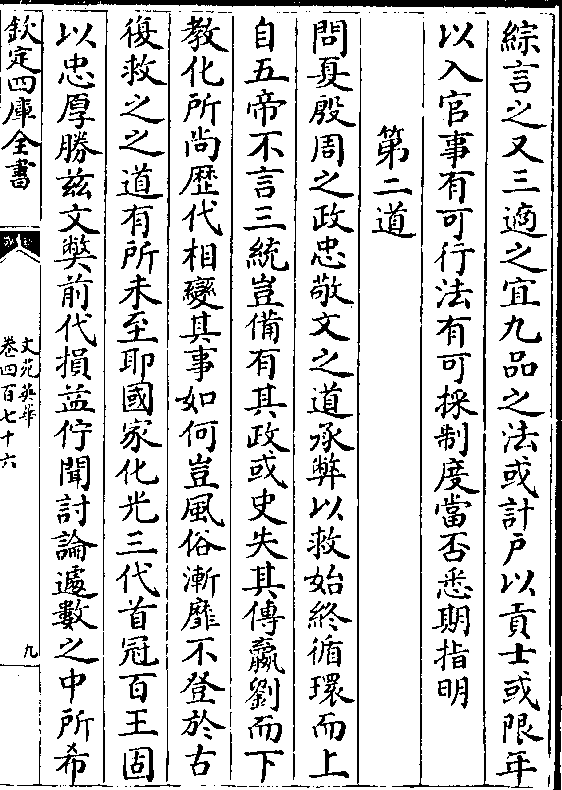 綜言之又三適之宜九品之法或計戶以貢士或限年
以入官事有可行法有可採制度當否悉期指明
第二道
問夏殷周之政忠敬文之道承弊以救始終循環而上
自五帝不言三統豈備有其政或史失其傳嬴劉而下
教化所尚歷代相變其事如何豈風俗漸靡不登於古
復救之之道有所未至耶國家化光三代首冠百王固
以忠厚勝茲文獘前代損益佇聞討論遽數之中所希
欽定四庫全書
文苑英華
卷四百七十六
九